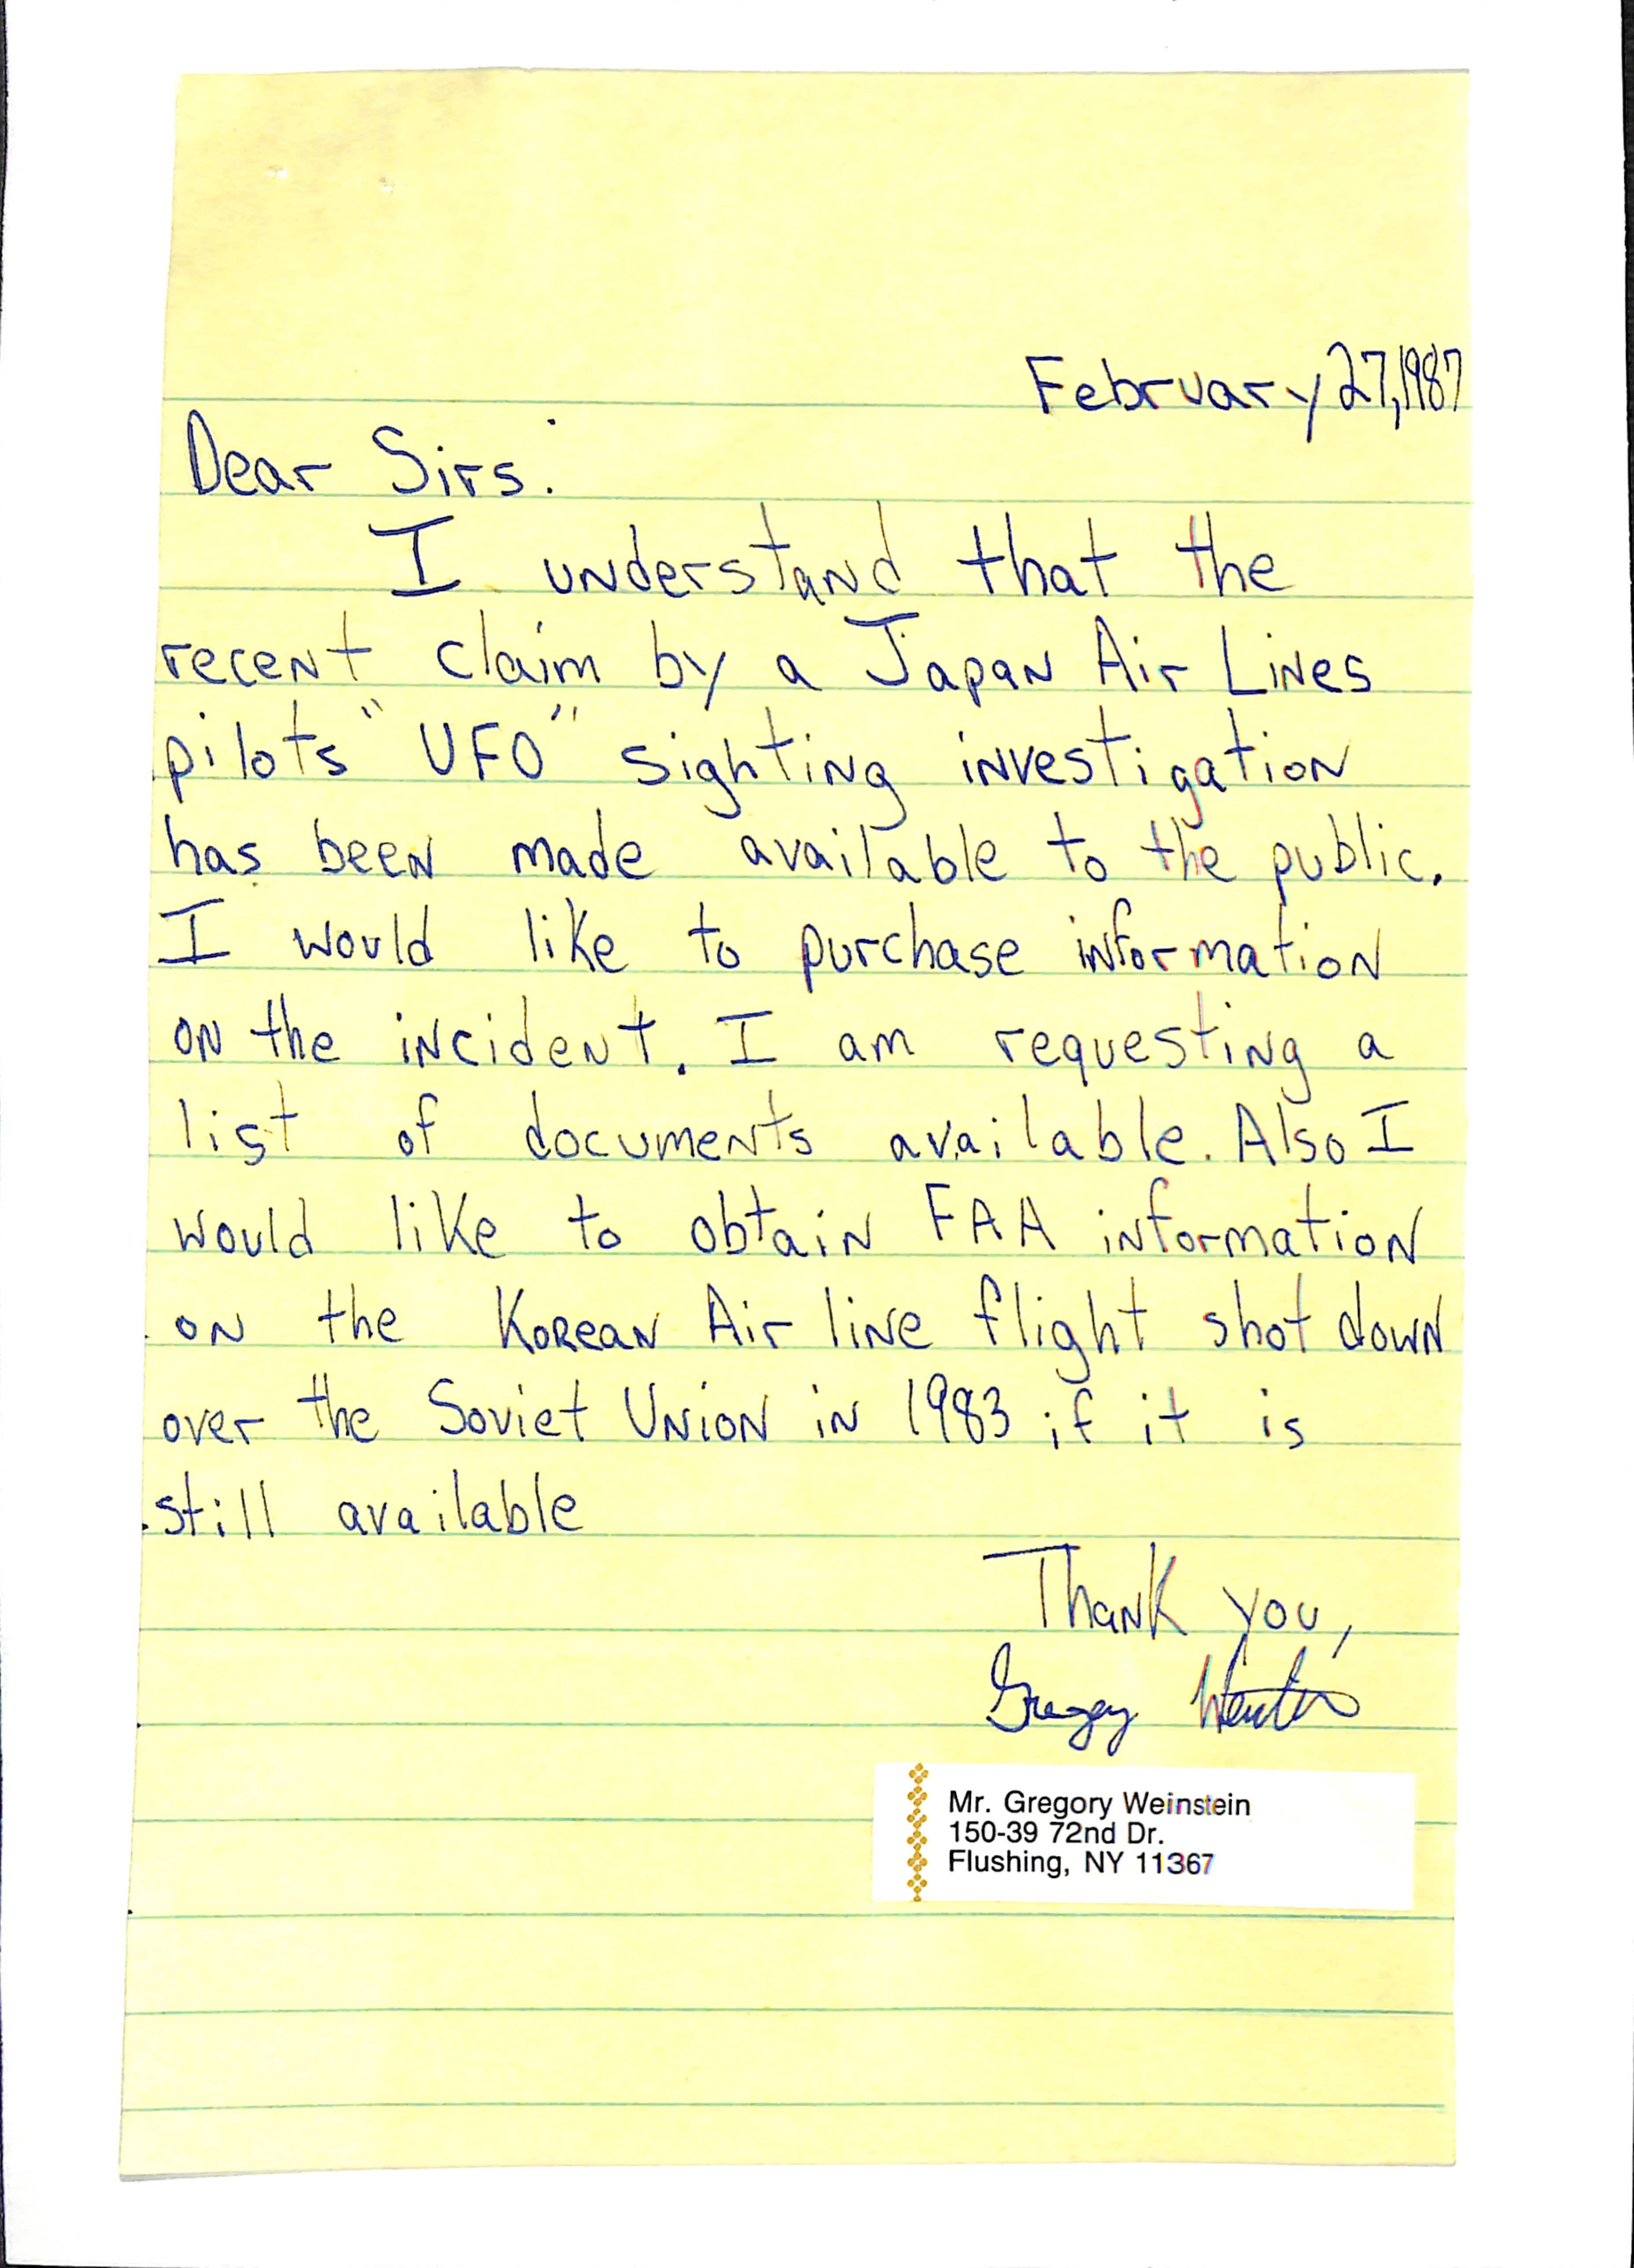 February 27, 1987
Dear Sirs:
I understand that the
recent claim by a Japan Air Lines
pilots "UFO" sighting investigation
has been made available to the public.
I would like to purchase information
on the incident. I am requesting a
list of documents available. Also I
would like to obtain FAA information
on the Korean Air line flight shot down
over the Soviet Union in 1983 if it is
still available
Thank you,
Gregory
Mr. Gregory Weinstein
150-39 72nd Dr.
Flushing, NY 11367